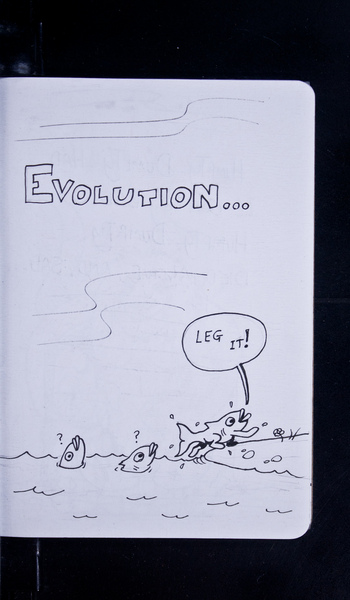 EVOLUTION...
LEG IT!
?
?